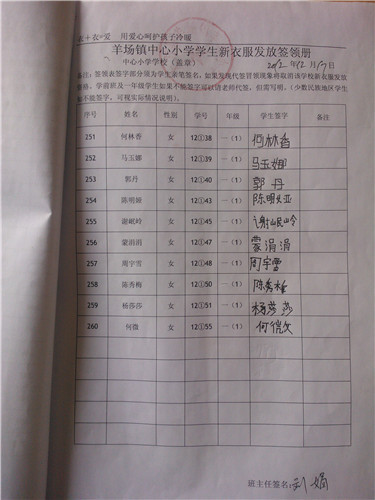 衣+衣=爱 用爱心呵护孩子冷暖
羊场镇中心小学学生新衣服发放签领册
中心小学学校（盖章） 2012年12月17日
备注：签领表签字部分须为学生亲笔签名，如果发现代签冒领现象将取消该学校新衣服发放
资格。学前班及一年级学生如果不能签字可以请老师代签，但需写明。（少数民族地区学生
如不能签字，可视实际情况说明）。
序号 姓名 性别 学号 年级 学生签字 备注
251 何林香 女 12①38 一（1） 何林香
252 马玉娜 女 12①39 一（1） 马玉娜
253 郭丹 女 12①40 一（1） 郭丹
254 陈明娅 女 12①43 一（1） 陈明娅
255 谢岷岭 女 12①45 一（1） 谢岷岭
256 蒙涓涓 女 12①47 一（1） 蒙涓涓
257 周宇雪 女 12①48 一（1） 周宇雪
258 陈秀梅 女 12①50 一（1） 陈秀梅
259 杨莎莎 女 12①51 一（1） 杨莎莎
260 何微 女 12①55 一（1） 何微
班主任签名：刘娟